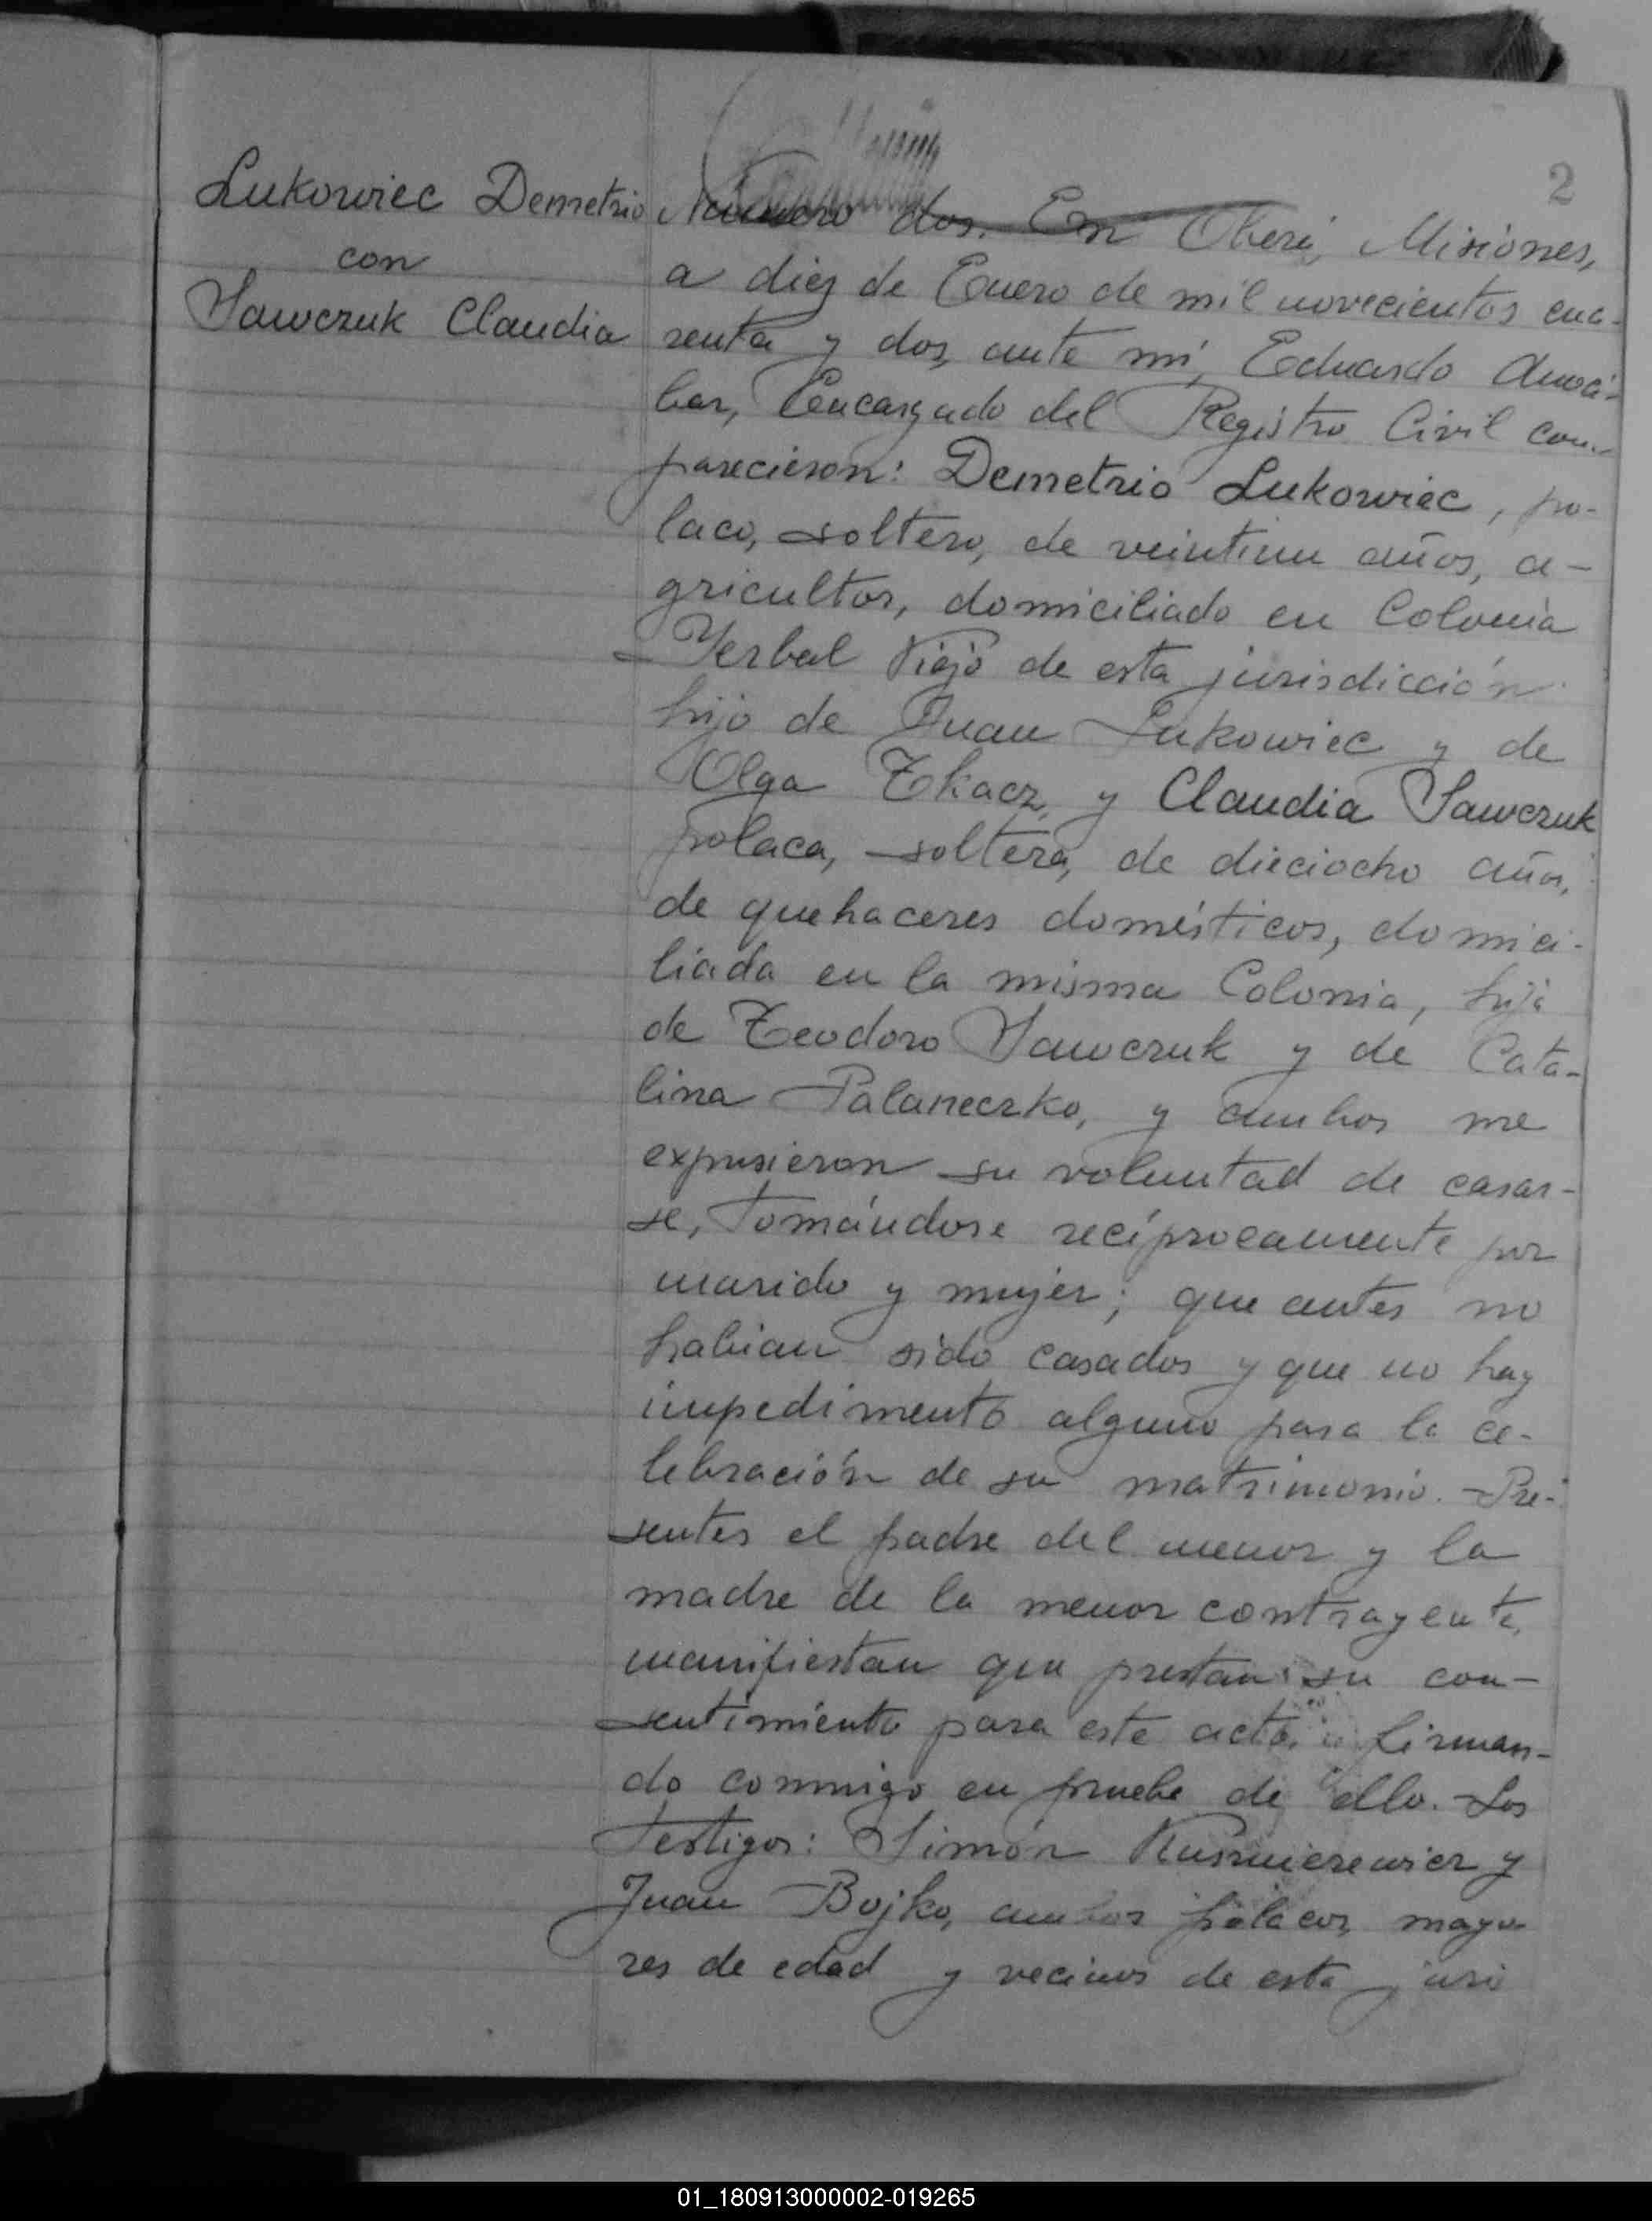 2
Lukowiec Demetrio
con
Sawczuk Claudia
Número dos. En Oberá, Misiones,
a diez de Enero de mil novecientos cua-
renta y dos, ante mí, Eduardo
bar, Encargado del Registro Civil com-
parecieron: Demetrio Lukowiec, po-
laco, soltero, de veintiun años, a-
gricultor, domiciliado en Colonia
Yerbal Viejo de esta jurisdicción
hijo de Juan Lukowiec y de
Olga Tkacz, y Claudia Sawczuk
polaca, soltera, de dieciocho años,
de quehaceres domésticos, domici-
liada en la misma Colonia, hija
de Teodoro Sawczuk y de Cata-
lina Palaneczko, y ambos me
expusieron su voluntad de casar-
se, tomándose recíprocamente por
marido y mujer; que antes no
habian sido casados y que no hay
impedimento alguno para la ce-
lebración de su matrimonio. Pre-
sentes el padre del menor y la
madre de la menor contrayente,
manifiestan que prestan su con-
sentimiento para este acto, firman-
do conmigo en prueba de ello. Los
Testigos: Simón Kusmierewicz y
Juan Bojko, ambos polacos, mayo
res de edad y vecinos de esta juris
01_180913000002-019265